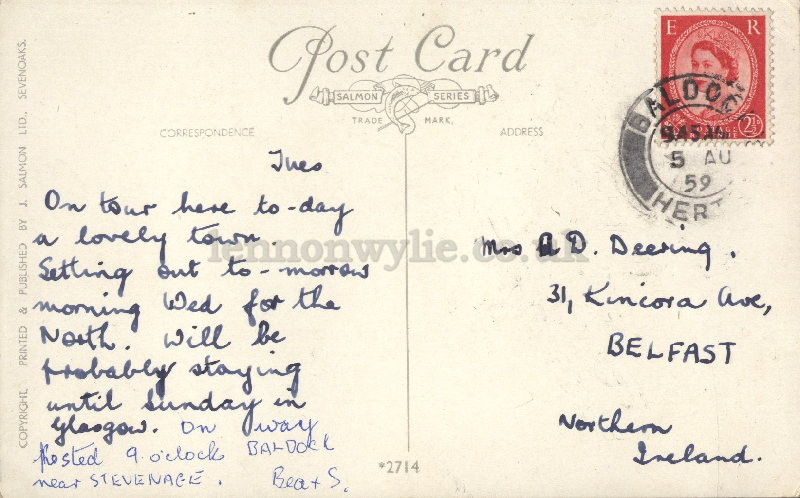 Post Card
SALMON SERIES
TRADE MARK.
CORRESPONDENCE
ADDRESS
E R
2½D
BALDOCK
9 45 AM
5 AU
59
HERTS
Tues
On tour here to-day
a lovely town.
Setting out to-morrow
morning Wed for the
North. Will be
probably staying
until Sunday in
Glasgow. On way
posted 9.o'clock BALDOCK
near STEVENAGE.
Bea + S.
Mrs A D. Deering.
31, Kincora Ave,
BELFAST
Northern
Ireland.
*2714
COPYRIGHT. PRINTED & PUBLISHED BY J. SALMON LTD., SEVENOAKS.
lennonwylie.co.uk